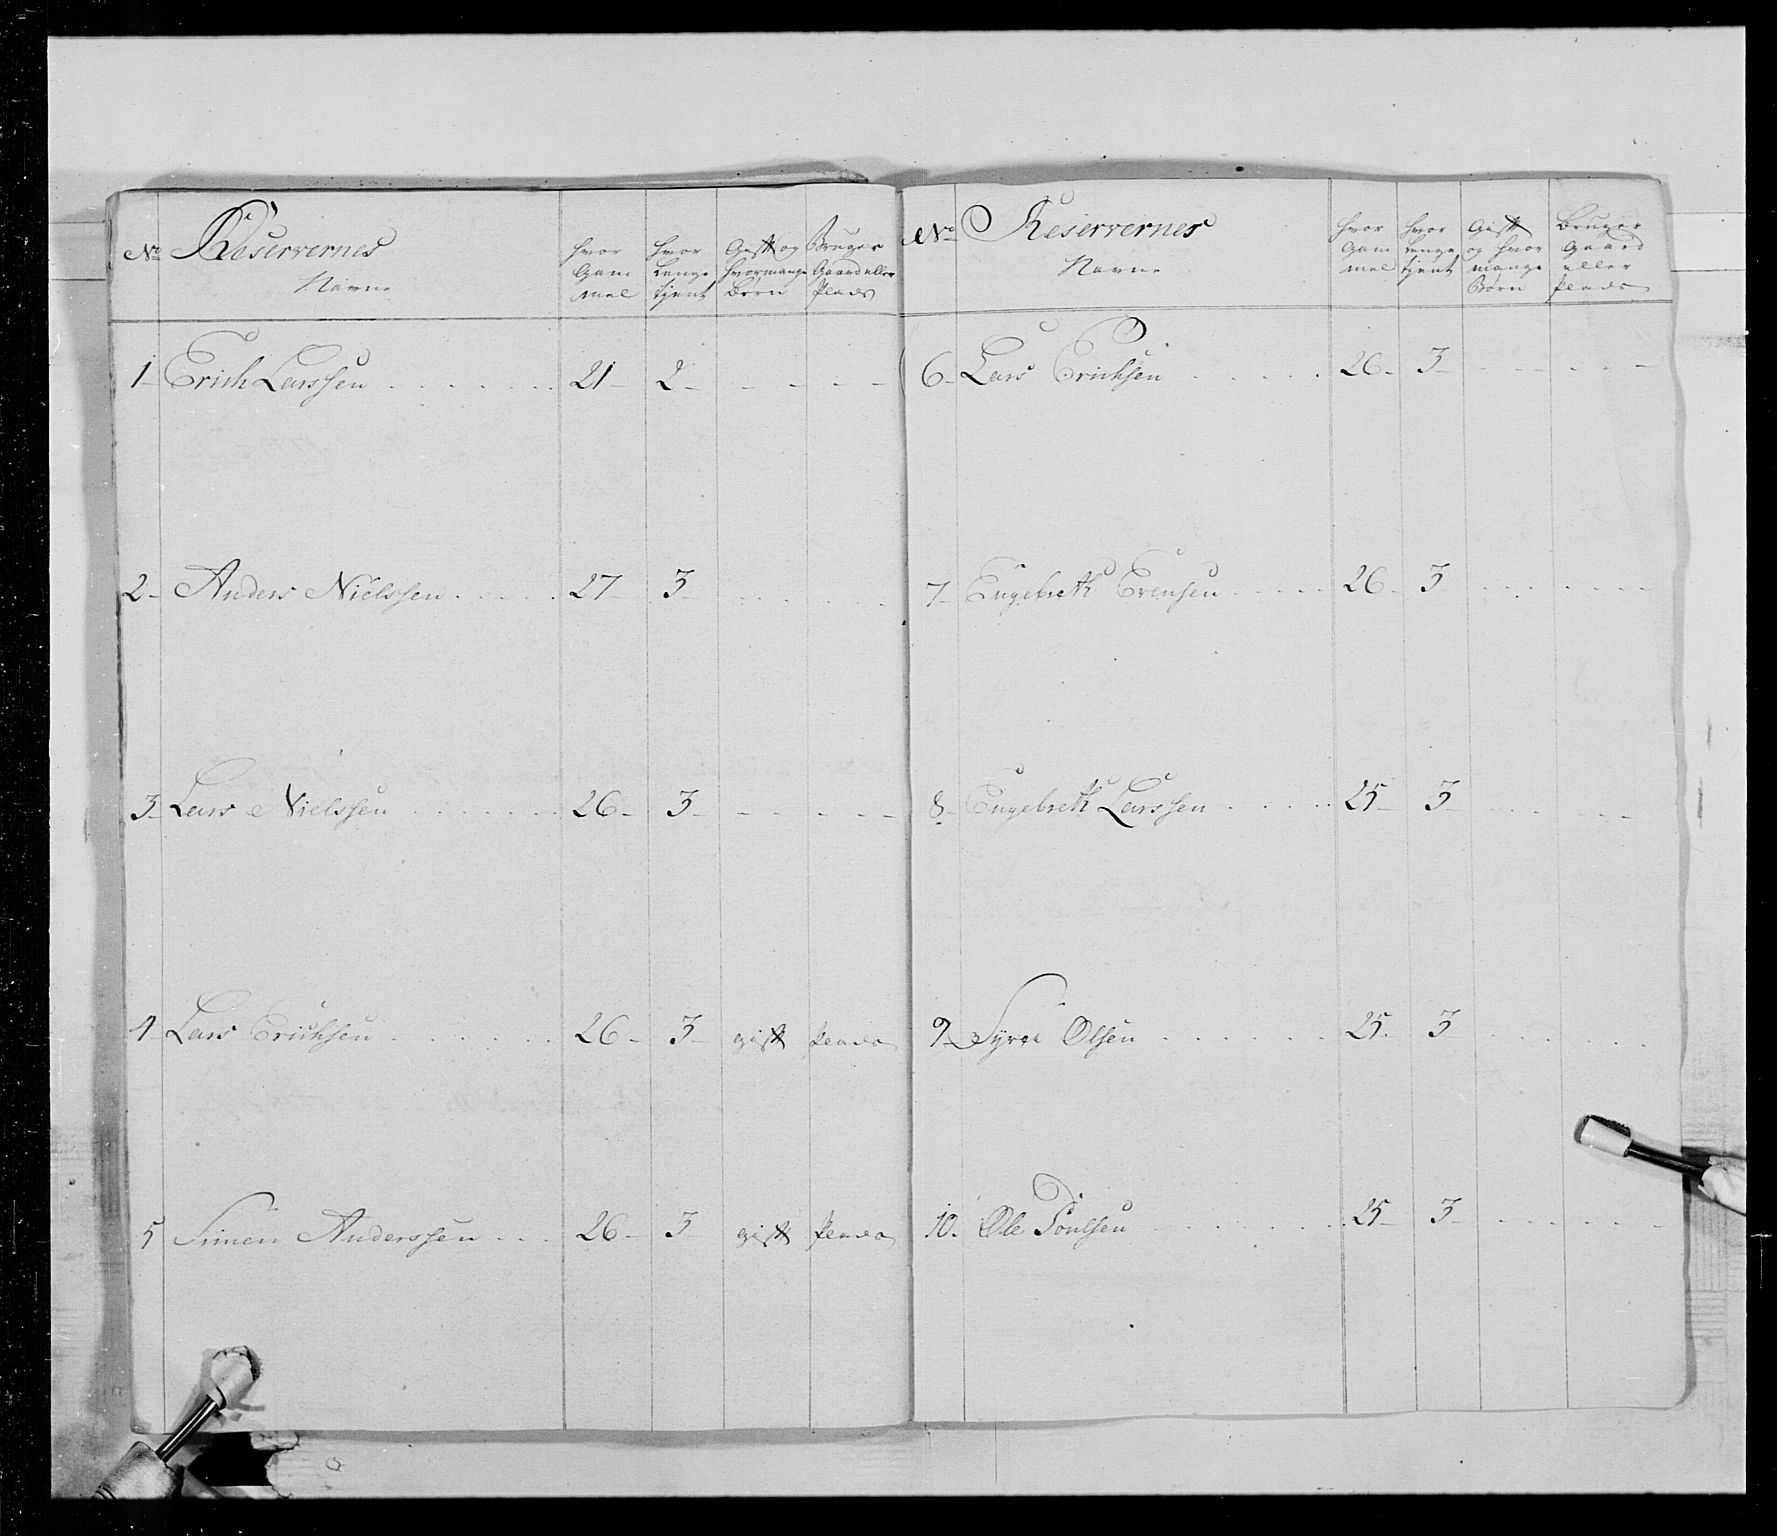 No Reservernes Navne hvor Gammel hvor Lenge tjent Gift og hvormange Børn Bruger Gaard eller Plads
1 Erich Larssen 21 2
2 Anders Nielssen 27 3
3 Lars Nielssen 26 3
4 Lars Erichsen 26 3 gift Plads
5 Simen Anderssen 26 3 gift Plads
No Reservernes Navne hvor Gammel hvor Lenge tjent Gift og hvor mange Børn Bruger Gaard eller Plads
6 Lars Erichsen 26 3
7 Engebreth Evensen 26 3
8 Engebreth Larssen 25 3
9 Syver Olsen 25 3
10. Ole Poulsen 25 3